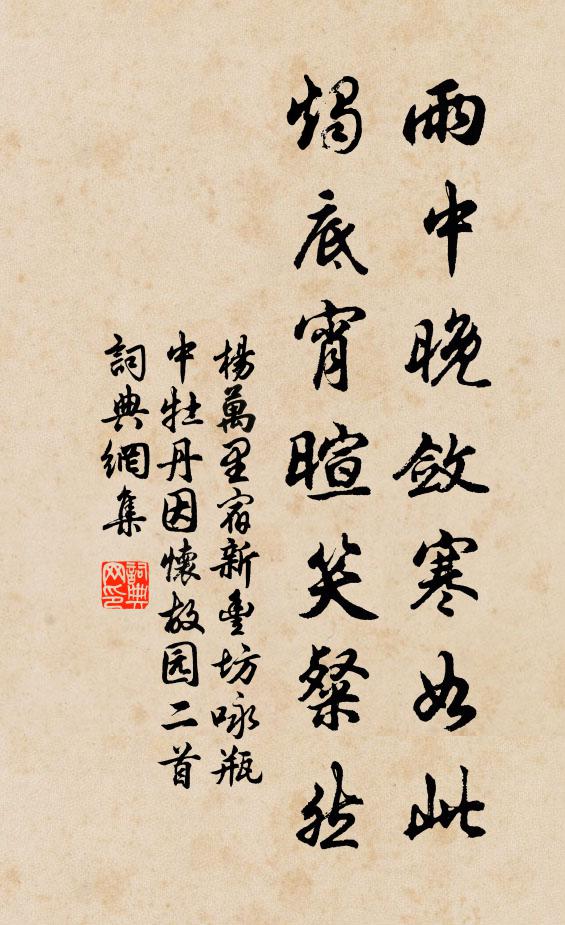 雨中晚斂寒如此
燭底宵暄笑粲然
楊萬里宿新豐坊咏瓶
中牡丹因懷故园二首
詞典網集
詞典网印